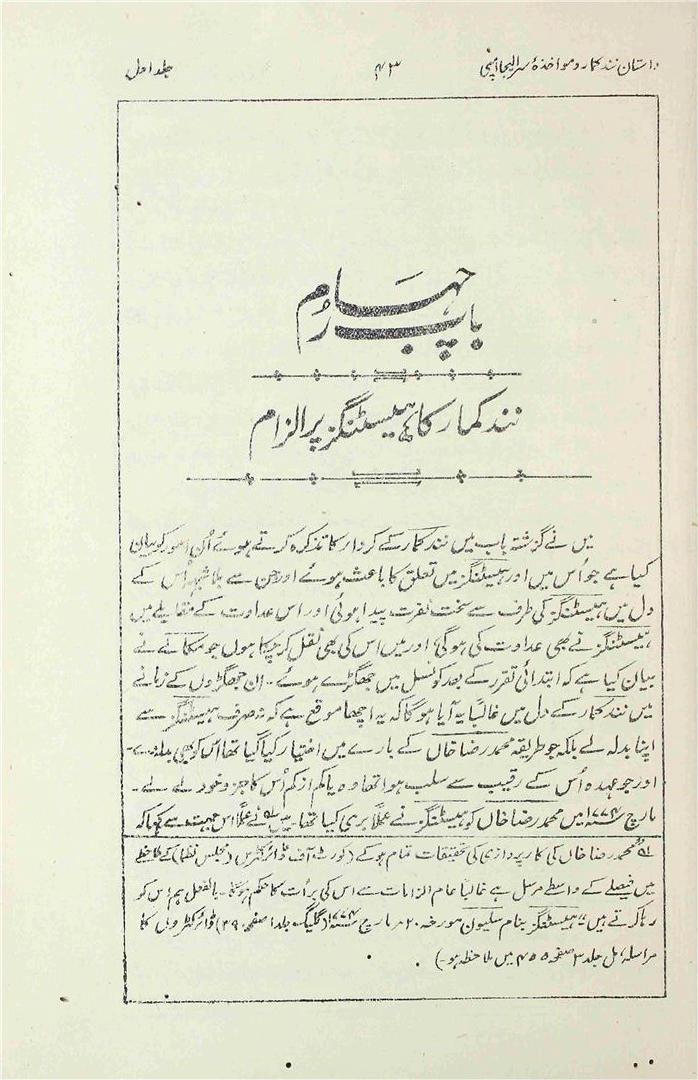 داستان نند کمار و مواخذهٔ سر الیجا امپی ۴۳ جلد اول
باب چہارم
نند کمار کا ہیسٹنگز پر الزام
میں نے گزشتہ باب میں نند کمار کے کردار کا تذکرہ کرتے ہوئے اُن امور کو بیان
کیا ہے جو اُس میں اور ہیسٹنگز میں تعلق کا باعث ہوئے اور جن سے بلا شبہہ اُس کے
دل میں ہیسٹنگز کی طرف سے سخت نفرت پیدا ہوئی اور اس عداوت کے مقابلے میں
ہیسٹنگز نے بھی عداوت کی ہوگی اور میں اس کی بھی نقل کر چکا ہوں جو مکالے نے
بیان کیا ہے کہ ابتدائی تقرر کے بعد کونسل میں جھگڑے ہوئے ۔ ان جھگڑوں کے زمانے
میں نند کمار کے دل میں غالباً یہ آیا ہوگا کہ یہ اچھا موقع ہے کہ نہ صرف ہیسٹنگز سے
اپنا بدلہ لے بلکہ جو طریقہ محمد رضا خاں کے بارے میں اختیار کیا گیا تھا اس کو بھی
اور جو عہدہ اُس کے رقیب سے سلب ہوا تھا وہ یا کم از کم اُس کا جزو خود لے لے ۔
مارچ ۱۷۷۴ء میں محمد رضا خاں کو ہیسٹنگز نے عملاً بری کیا تھا۔ میں نے عملاً اس جہت سے کہا کہ
محمد رضا خاں کی کارپردازی کی تحقیقات تمام ہو کے (کورٹ آف ڈائرکٹرس (مجلس نظما) کے ملاحظہ
میں فیصلے کے واسطے مرسل ہے غالباً عام الزامات سے اس کی برأت کا حکم ہوگا۔ بالفعل ہم اس کو
رہا کرتے ہیں" ہیسٹنگز بنام سلیون مورخہ ۲۰ مارچ ۱۷۷۴ء (گلیگ جلد اصفحہ ۳۹۰) ڈائرکٹروں کا
مراسلہ مل جلد ۳ صفحہ ۴۵۵ میں ملاحظہ ہو۔)